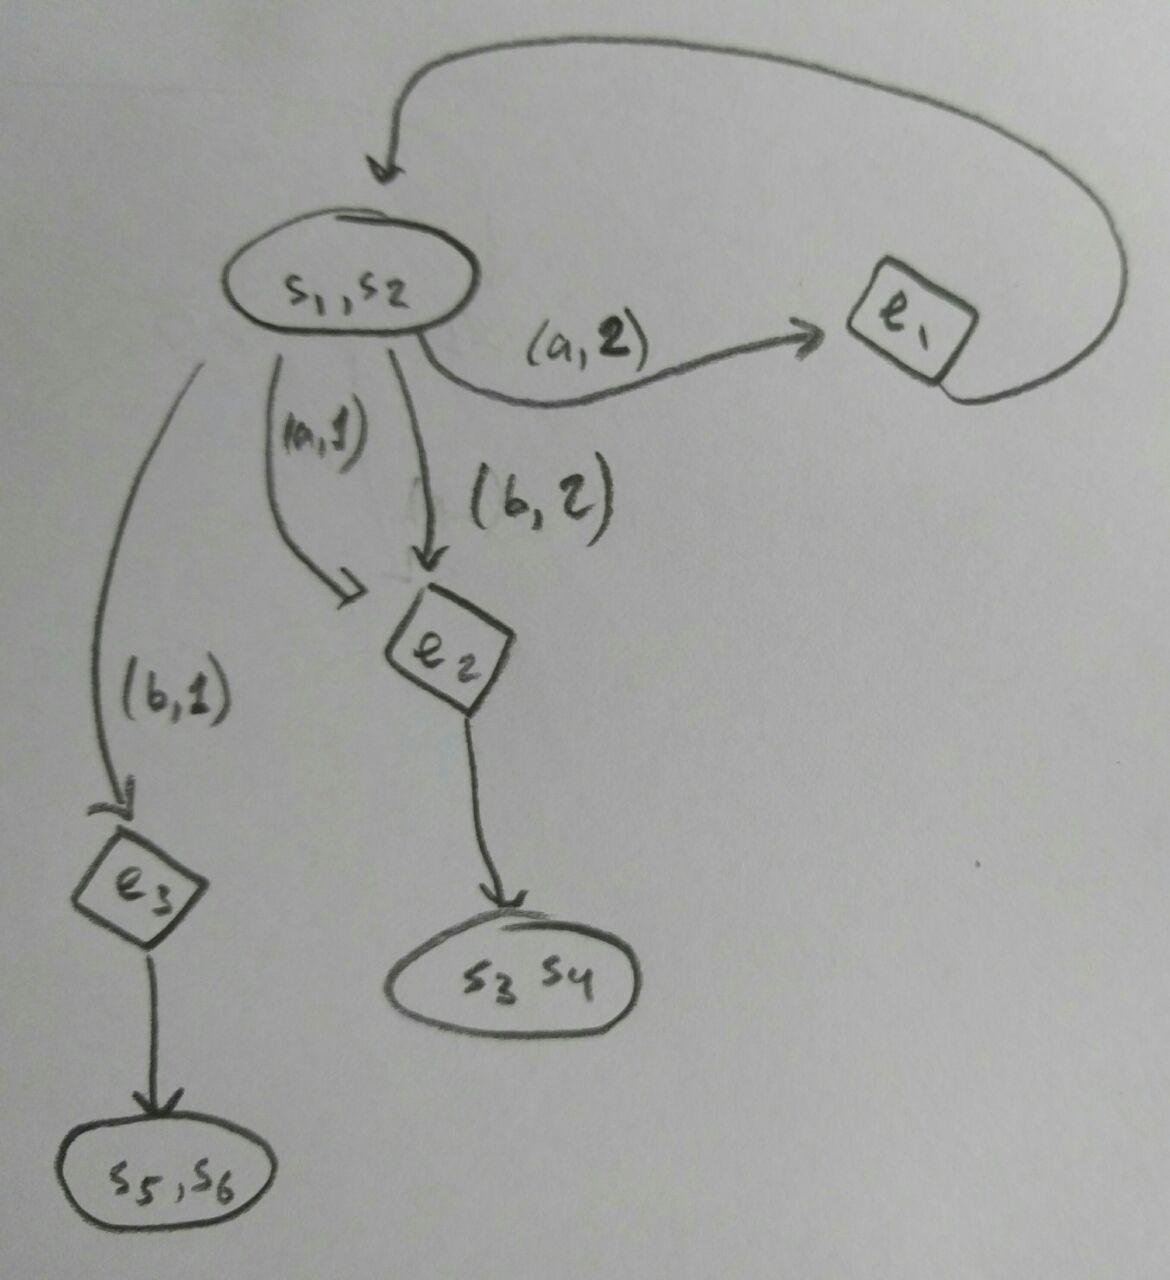 s1, s2
e1
(a, 2)
(a, 1)
(b, 2)
e2
(b, 1)
e3
s3 s4
s5, s6